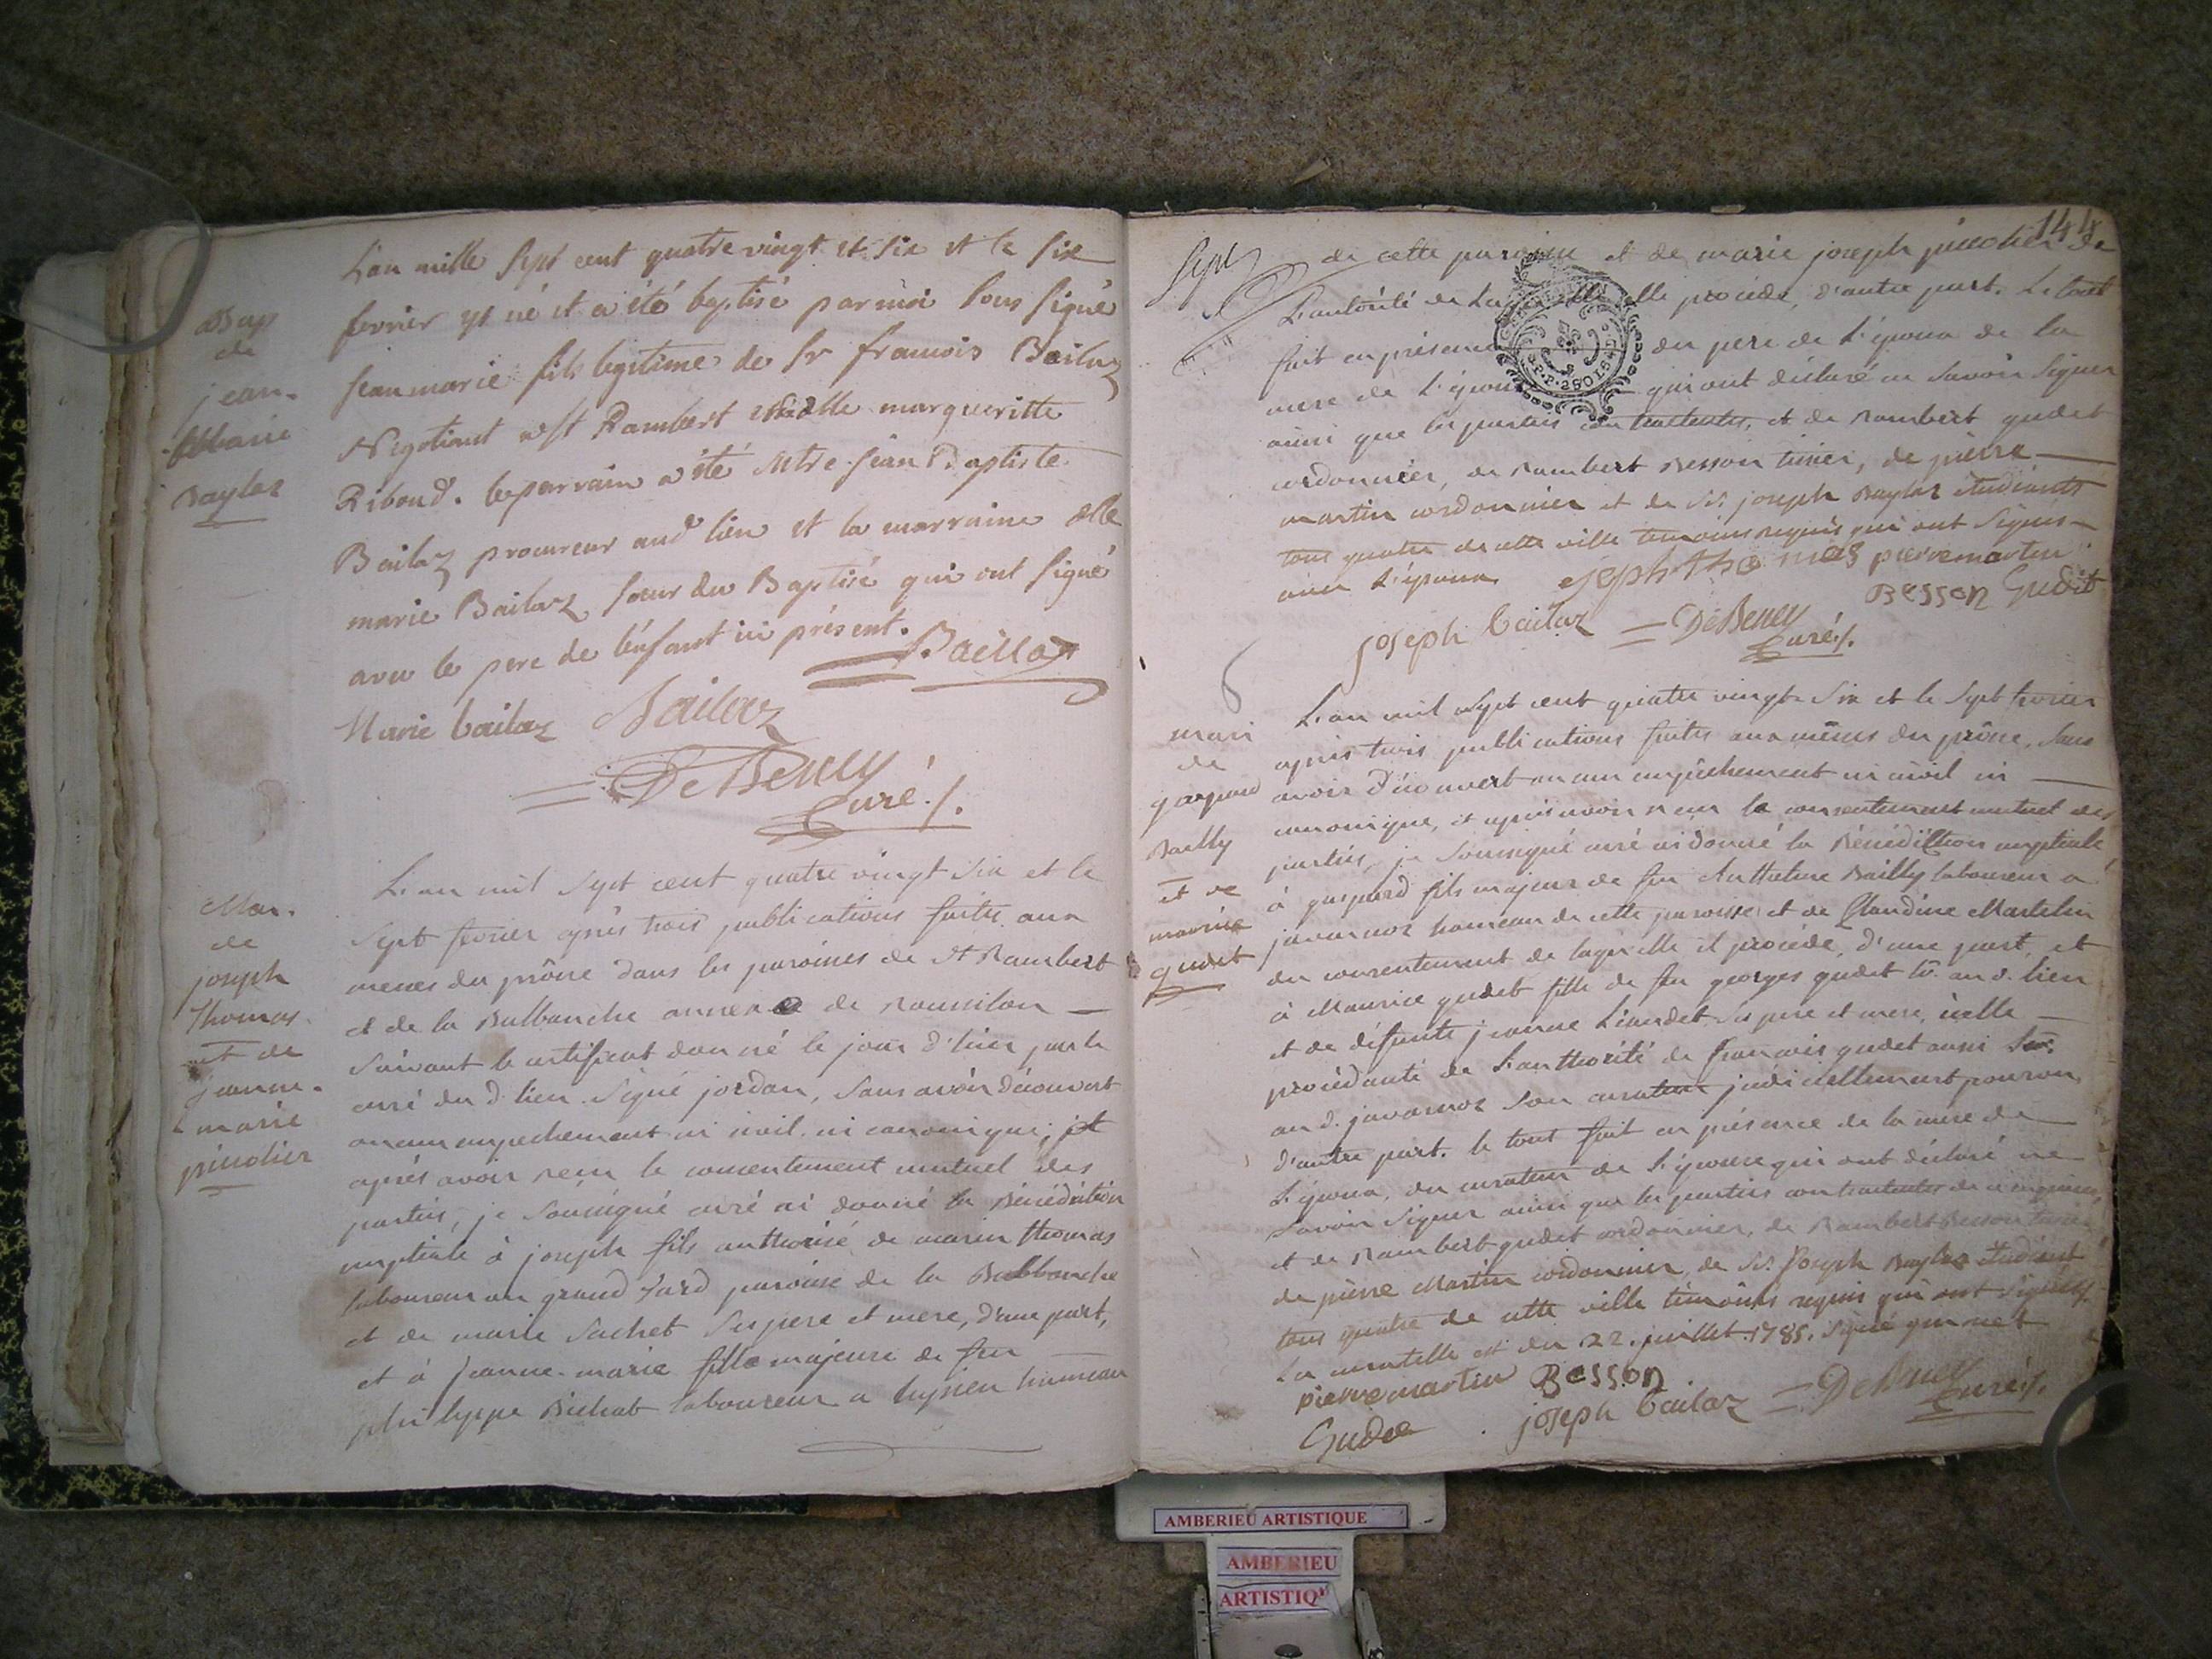 Bap
de
jean-
Marie
Baylaz
L'an mille Sept cent quatre vingt et six et le six
fevrier est né et a été baptisé par moi Sous Signé
jean marie fils legitime de Sr francois Bailaz
Negotiant a St Rambert et de dlle margueritte
Riboud. le parrain a été Mtre jean Baptiste
Bailaz procureur aud lieu et la marraine dlle
marie Bailaz Soeur du Baptisé qui ont Signé
avec le pere de l'enfant ici présent. Baillaz
Marie bailaz Bailaz
De Beney
Curé ./.
Mar.
de
joseph
Thomas
et de
jeanne-
marie
L'an mil Sept cent quatre vingt Six et le
Sept fevrier après trois publications faites aux
messes du prône dans les paroisses de St Rambert
et de la Balbanche annexe de
Suivant le certificat donné le jour d'hier par le
curé du d. lieu Signé jordan, Sans avoir découvert
aucun empechement ni civil ni canonique; et
après avoir reçu le consentement mutuel des
parties, je Soussigné curé ai donné la Bénédiction
nuptiale à joseph fils authorisé de marin thomas
laboureur au grand paroisse de la Balbanche
et de marie Sachet Ses pere et mere, d'une part,
et à jeanne-marie fille majeure de feu
philippe laboureur a hameau
144
Sept
de cette paroisse et de marie joseph de
L'autorité de elle procéde, d'autre part. Le tout
fait en présence du pere de L'époux de la
mere de L'épouse qui ont déclaré ne Savoir Signer
ainsi que les parties contractantes, et de Rambert gudet
cordonnier, de Rambert Besson de pierre
martin cordonnier et de Sr. joseph Baylaz étudiant
tous quatre de cette ville temoins requis qui ont Signés
avec L'époux joseph thomas pierre martin
Besson Gudet
joseph bailaz = De Beney
Curé ./.
6
mari
de
gaspard
Bailly
et de
maurise
gudet
L'an mil Sept cent quatre vingt Six et le Sept fevrier
après trois publications faites aux messes du prône, Sans
avoir découvert aucun empêchement ni civil ni
canonique, et après avoir reçu le consentement mutuel des
parties, je Soussigné curé ai donné la Bénédiction nuptiale
à gaspard fils majeur de feu Anthelme Bailly laboureur a
javornoz hameau de cette paroisse et de Claudine Martelin
du consentement de laquelle il procéde, d'une part, et
à Maurice gudet fille de feu georges gudet au d. lieu
et de défunte jeanne Ses pere et mere, icelle
procédante de L'authorité de francois gudet aussi
au d. javornoz Son curateur judiciellement pourvu,
d'autre part. le tout fait en présence de la mere de
L'époux, du curateur de L'épouse qui ont déclaré ne
Savoir Signer ainsi que les parties contractantes de ce enquises,
et de Rambert gudet cordonnier, de Rambert Besson
de pierre Martin cordonnier, de Sr. Joseph Baylaz étudiant
tous quatre de cette ville témoins requis qui ont Signés ./.
La curatelle est du 22. juillet 1785. Signé
pierre martin Besson
Gudet joseph bailaz = De Beney
Curé ./.
AMBERIEU ARTISTIQUE
AMBERIEU
ARTISTIQ